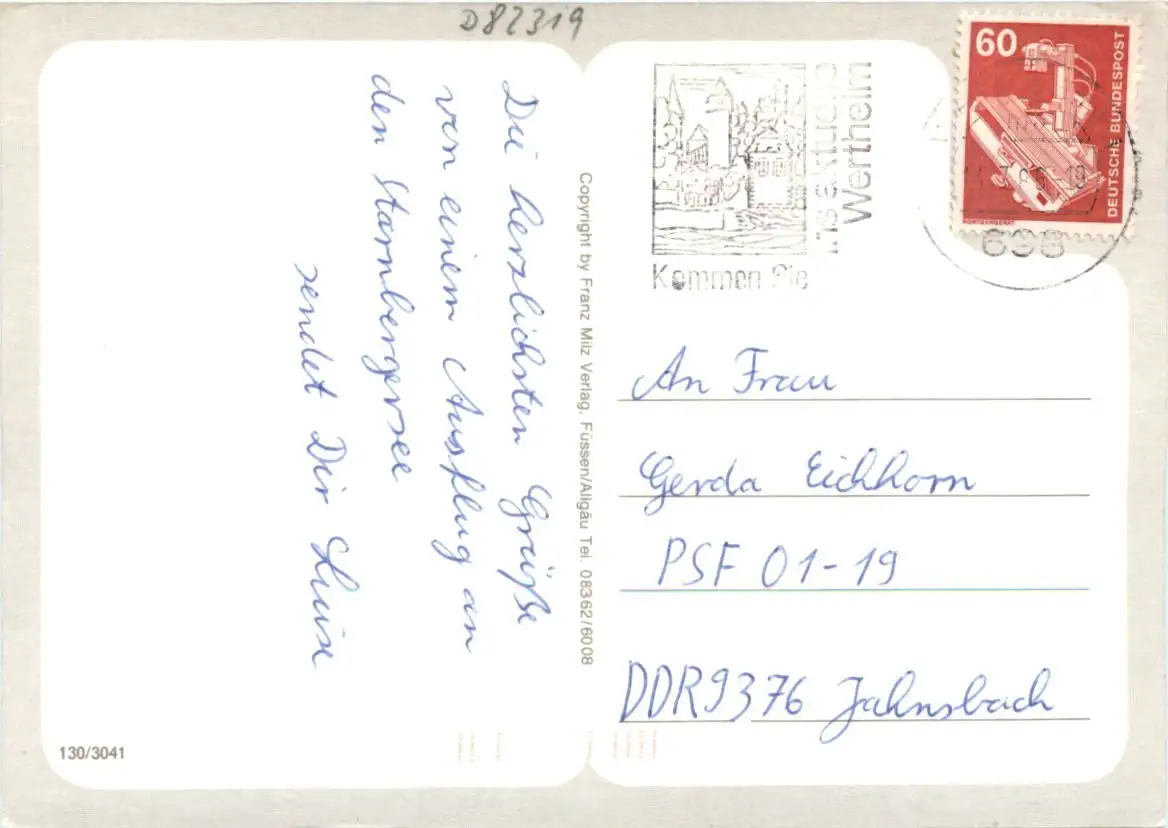 D82319
Die herzlichsten Grüße
von einem Ausflug an
den Starnbergersee
sendet Dir Luise
Copyright by Franz Milz Verlag, Füssen/Allgäu Tel. 08362/6008
130/3041
Kommen Sie
Wertheim
698
60
DEUTSCHE BUNDESPOST
An Frau
Gerda Eichhorn
PSF 01-19
DDR 9376 Jahnsbach